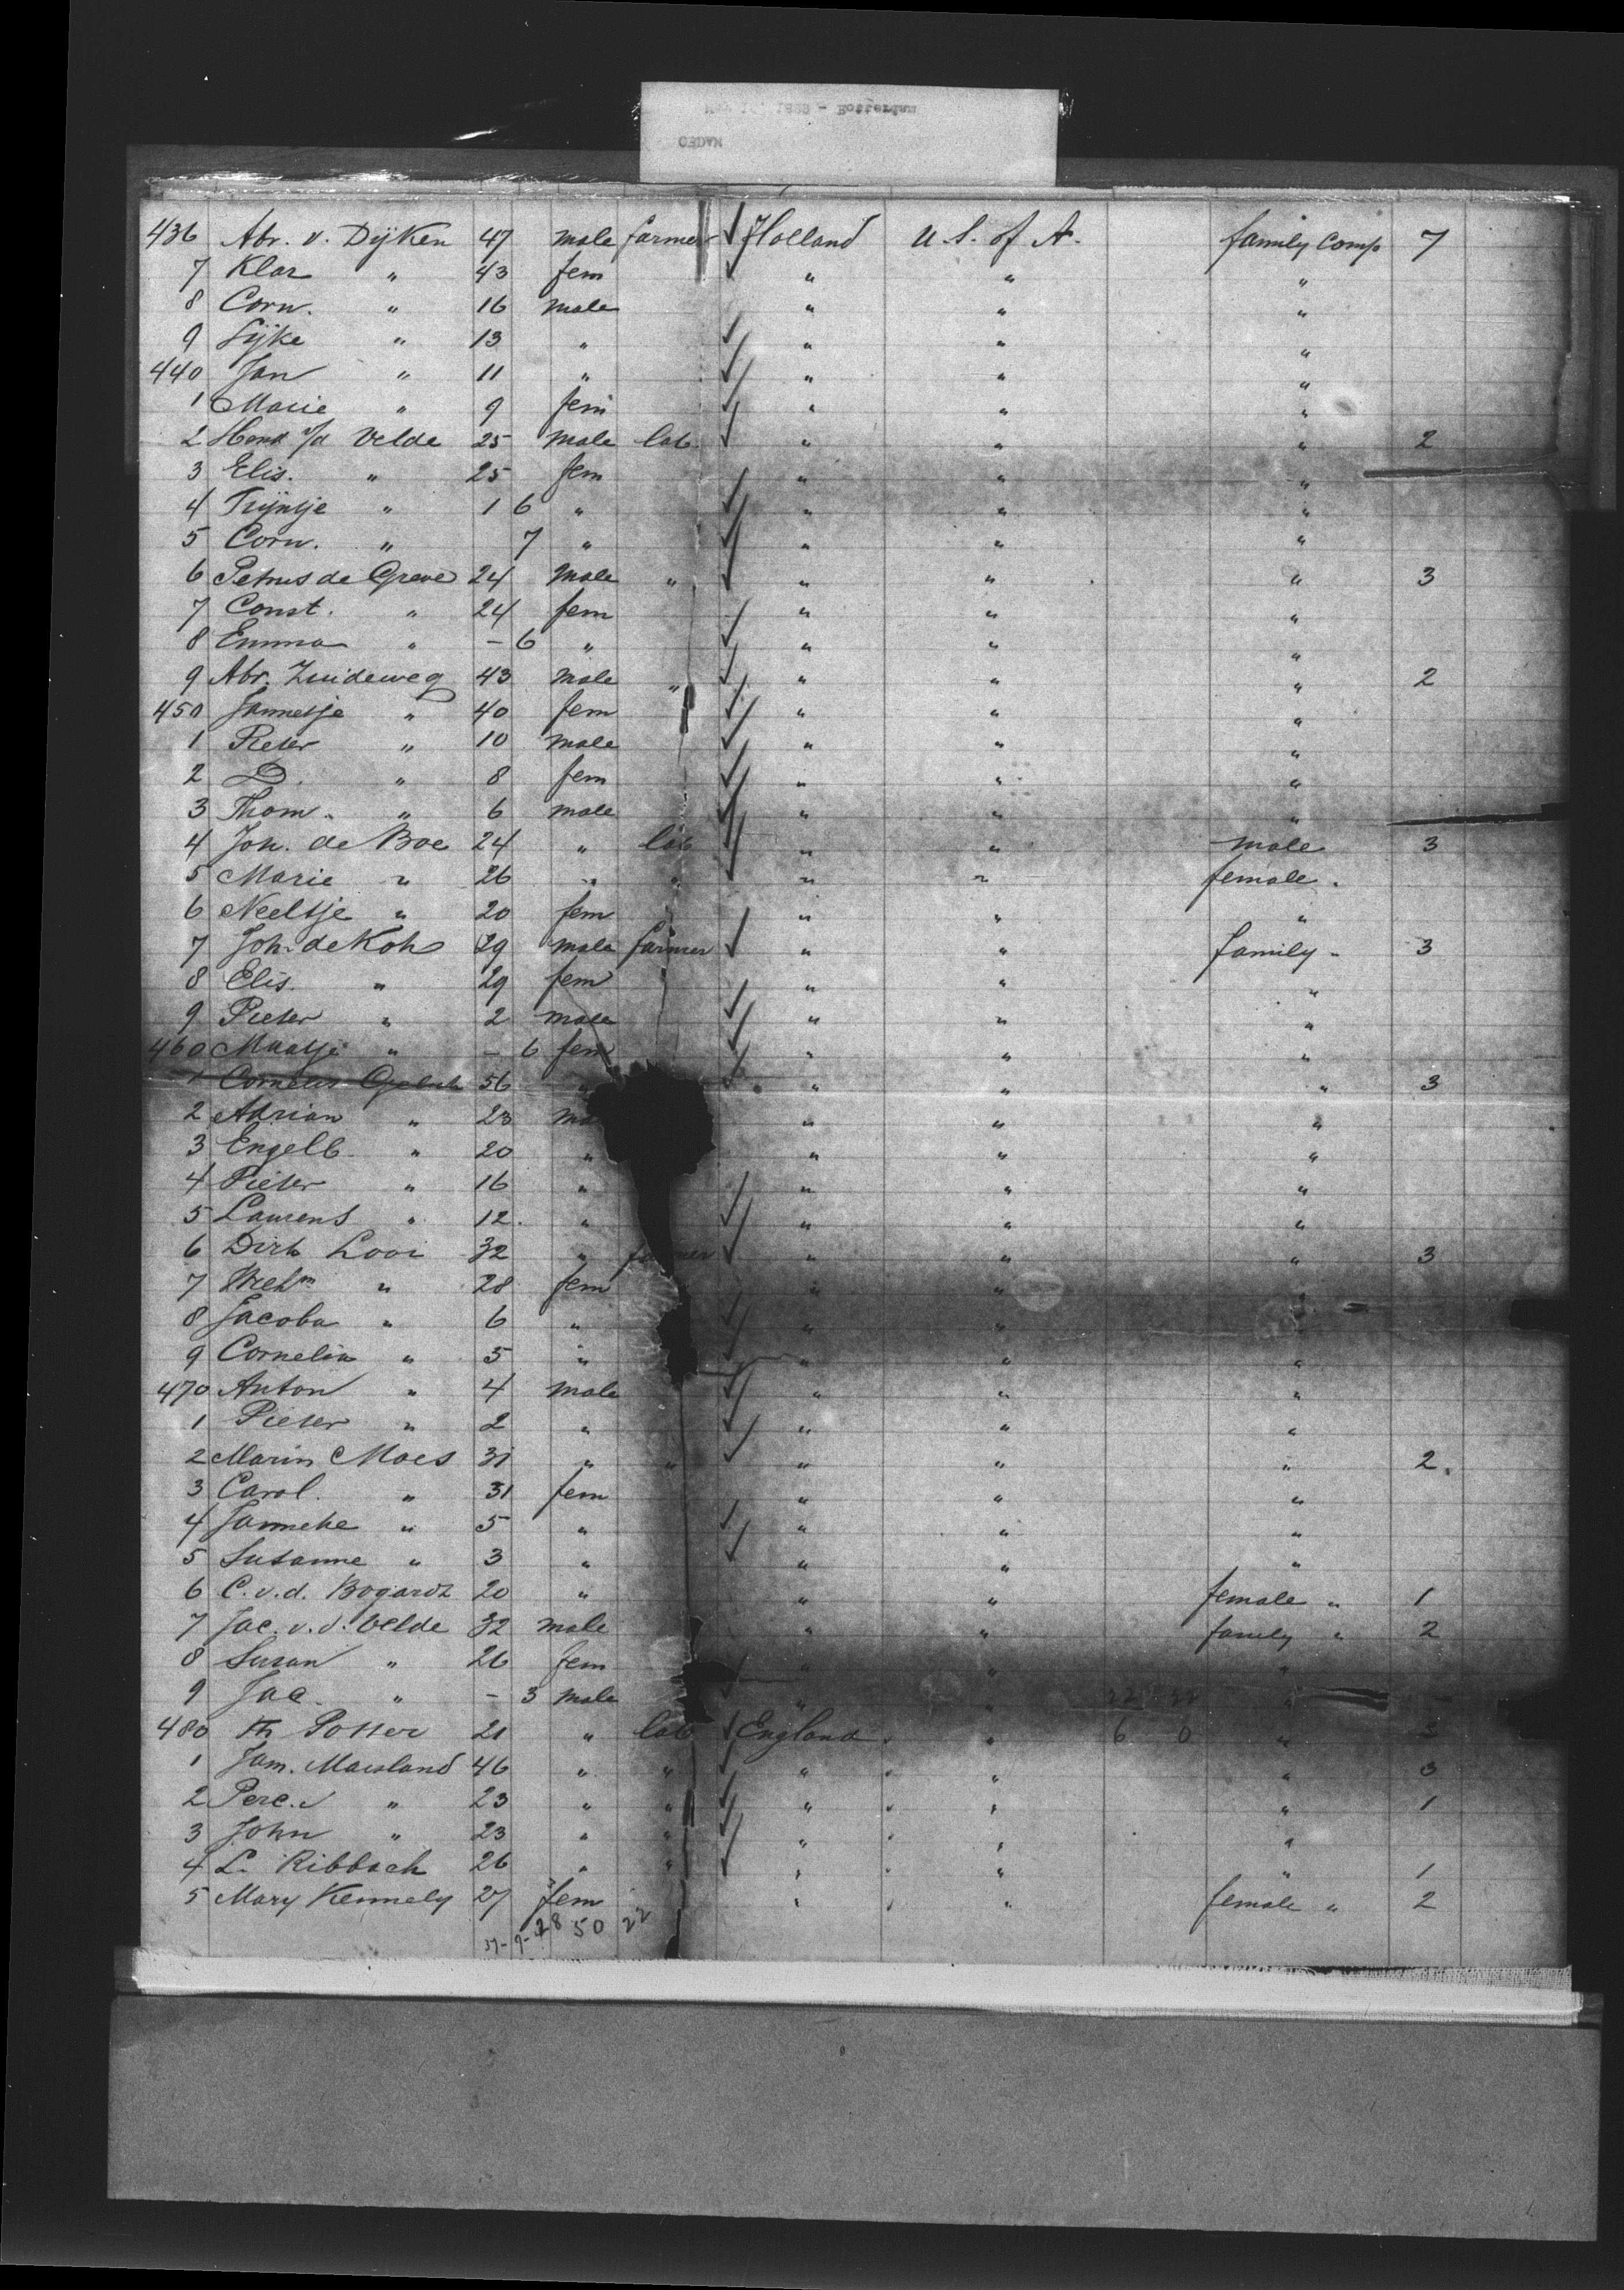 436 Abr. v. Dijken 47 male farmer Holland U. S. of A. family comp 7
7 Klar " 43 fem " " "
8 Corn. " 16 male " " "
9 Sijke " 13 " " " "
440 Jan " 11 " " " "
1 Marie " 9 fem " " "
2 Velde 25 male lab. " " " 2
3 Elis. " 25 fem " " "
4 Trijntje " 1 6 " " " "
5 Corn. " 7 " " " "
6 Petrus de Greve 24 male " " " " 3
7 Const. " 24 fem " " "
8 Emma " - 6 " " " "
9 Abr. Zuideweg 43 male " " " " 2
450 Jannetje " 40 fem " " "
1 Pieter " 10 male " " "
2 D. " 8 fem " " "
3 Thom. " 6 male " " "
4 Joh. de Boe 24 " lab " " male 3
5 Marie " 26 " " " " female "
6 Neeltje " 20 fem " " "
7 Joh. de Koh 29 male farmer " " family " 3
8 Elis. " 29 fem " " "
9 Pieter " 2 male " " "
460 Maatje " - 6 fem " " "
1 Cornelis 56 " " " " 3
2 Adrian " 23 ma " " "
3 Engelb. " 20 " " " "
4 Pieter " 16 " " " "
5 Laurens " 12. " " " "
6 Dirk Looi 32 " farmer " " " 3
7 " 28 fem " " "
8 Jacoba " 6 " " " "
9 Cornelia " 5 " " " "
470 Anton " 4 male " " "
1 Pieter " 2 " " " "
2 Marin Maes 31 " " " " " 2.
3 Carol. " 31 fem " " "
4 Janneke " 5 " " " "
5 Susanne " 3 " " " "
6 C. v. d. 20 " " " female " 1
7 Jac. v. d. Velde 32 male " " family " 2
8 Susan " 26 fem " " "
9 Jac. " - 3 male " " 22 32 "
480 Th Potter 21 " lab England " " 6 0 "
1 Jam. 46 " " " " " " 3
2 " 23 " " " " " " 1
3 John " 23 " " " " " "
4 L. Ribbach 26 " " " " " " 1
5 Mary Kennely 27 fem " " " female " 2
28 50 22